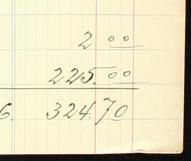 2 00
225.00
6. 324.70